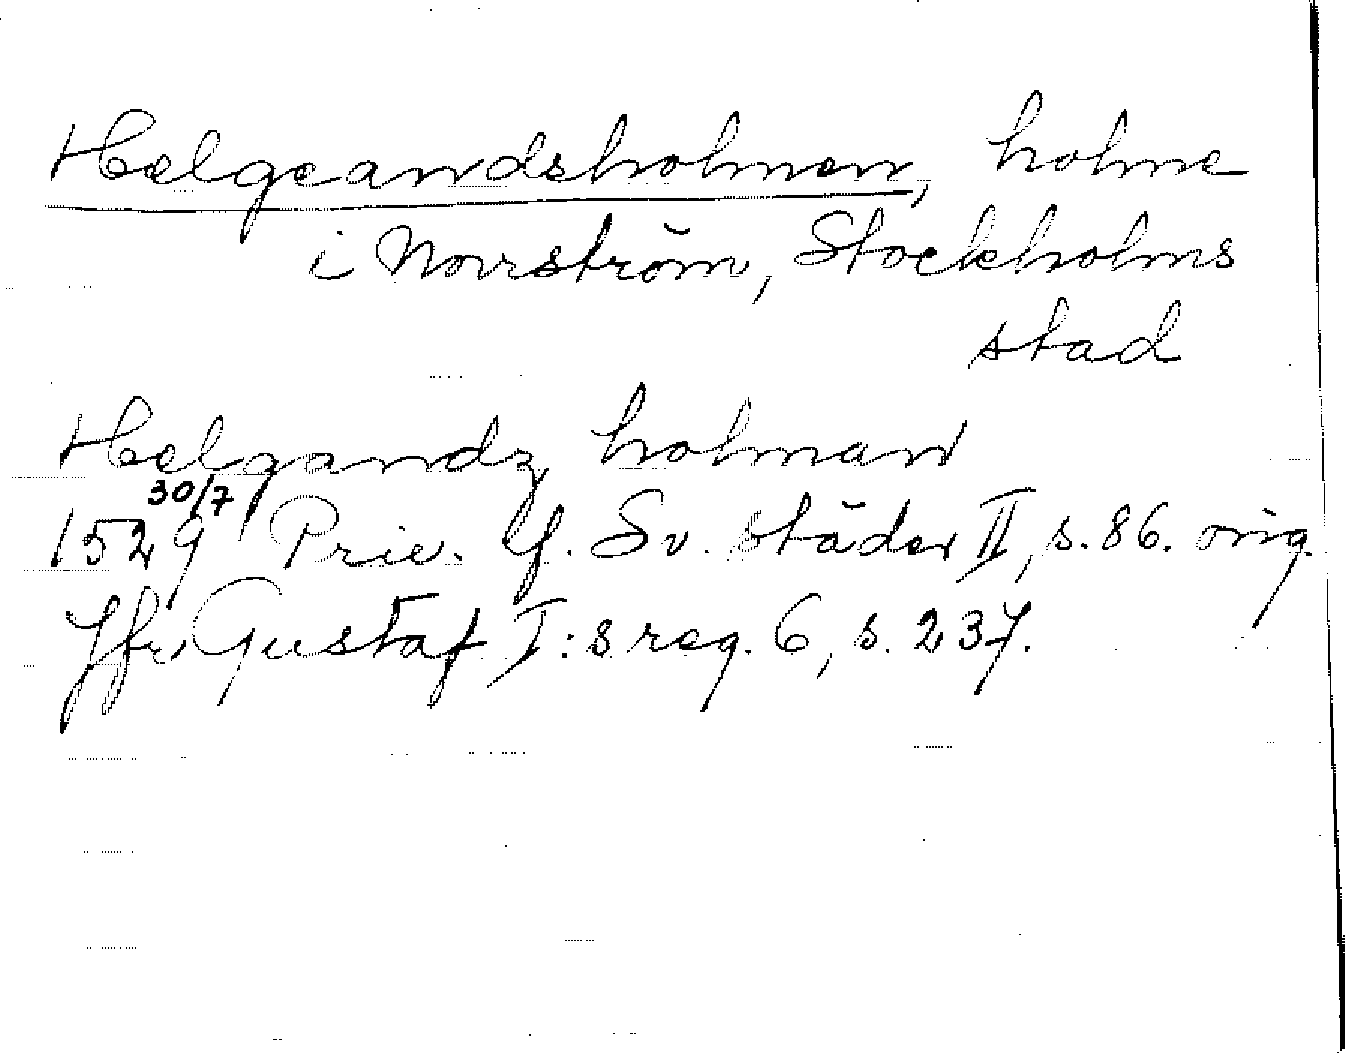 Helgeandsholmen, holme
i Norrström, Stockholms
stad
Helgandz holman
30/7
1529 Priv. f. Sv. städer II, s. 86. orig.
Jfr Gustaf I:s reg. 6, s. 237.